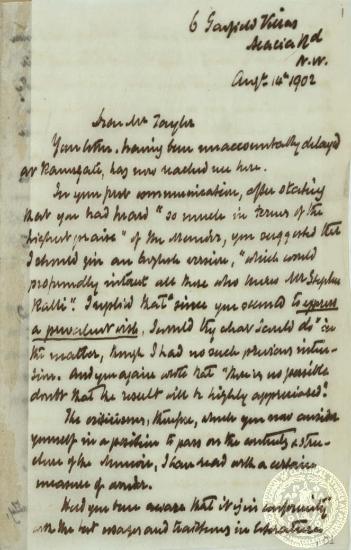 6 Garfield Villas
Acacia Rd
N.W.
Augt. 14th 1902
Dear Mr Taylor
Your letter, having been unaccountably delayed
at Ramsgate, has now reached me here.
In your first communication, after stating
that you had heard "so much in terms of the
highest praise" of the Memoir, you suggested that
I should give an English version, "which would
profoundly interest all those who knew Mr Stephen
Ralli". I replied that "since you seemed to express
a prevalent wish, I would try what I could do" in
the matter, though I had no such previous inten-
sion. And you again wrote that "there is no possible
doubt that the result will be highly appreciated".
The criticisms, therefore, which you now consider
yourself in a position to pass on the contents & stru-
cture of the Memoir, I can read with a certain
measure of wonder.
Had you been aware that it is in conformity
with the best usages and traditions in literature